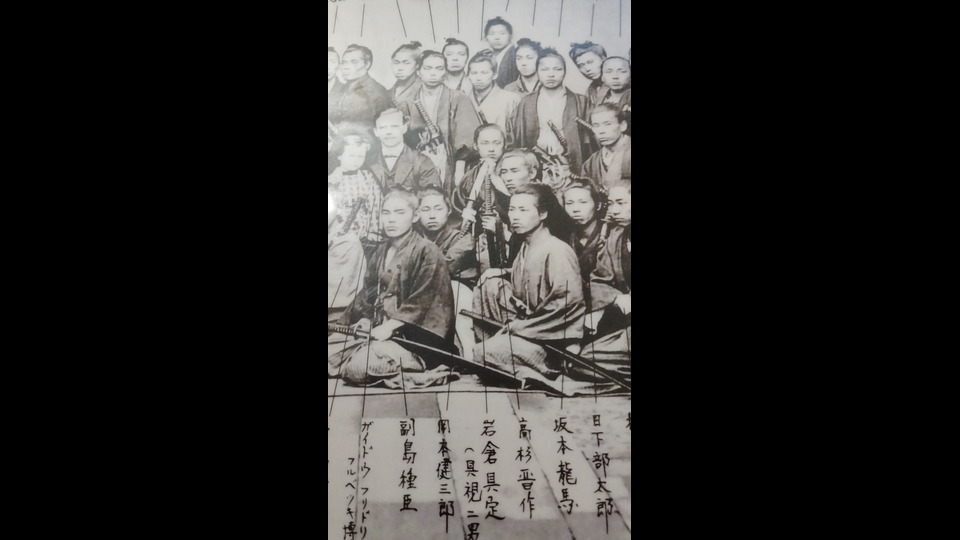 日下部太郎
坂本龍馬
高杉晋作
岩倉具定
(具視二男
岡本健三郎
副島種臣
ガイドウフリドリ
フルベッキ博